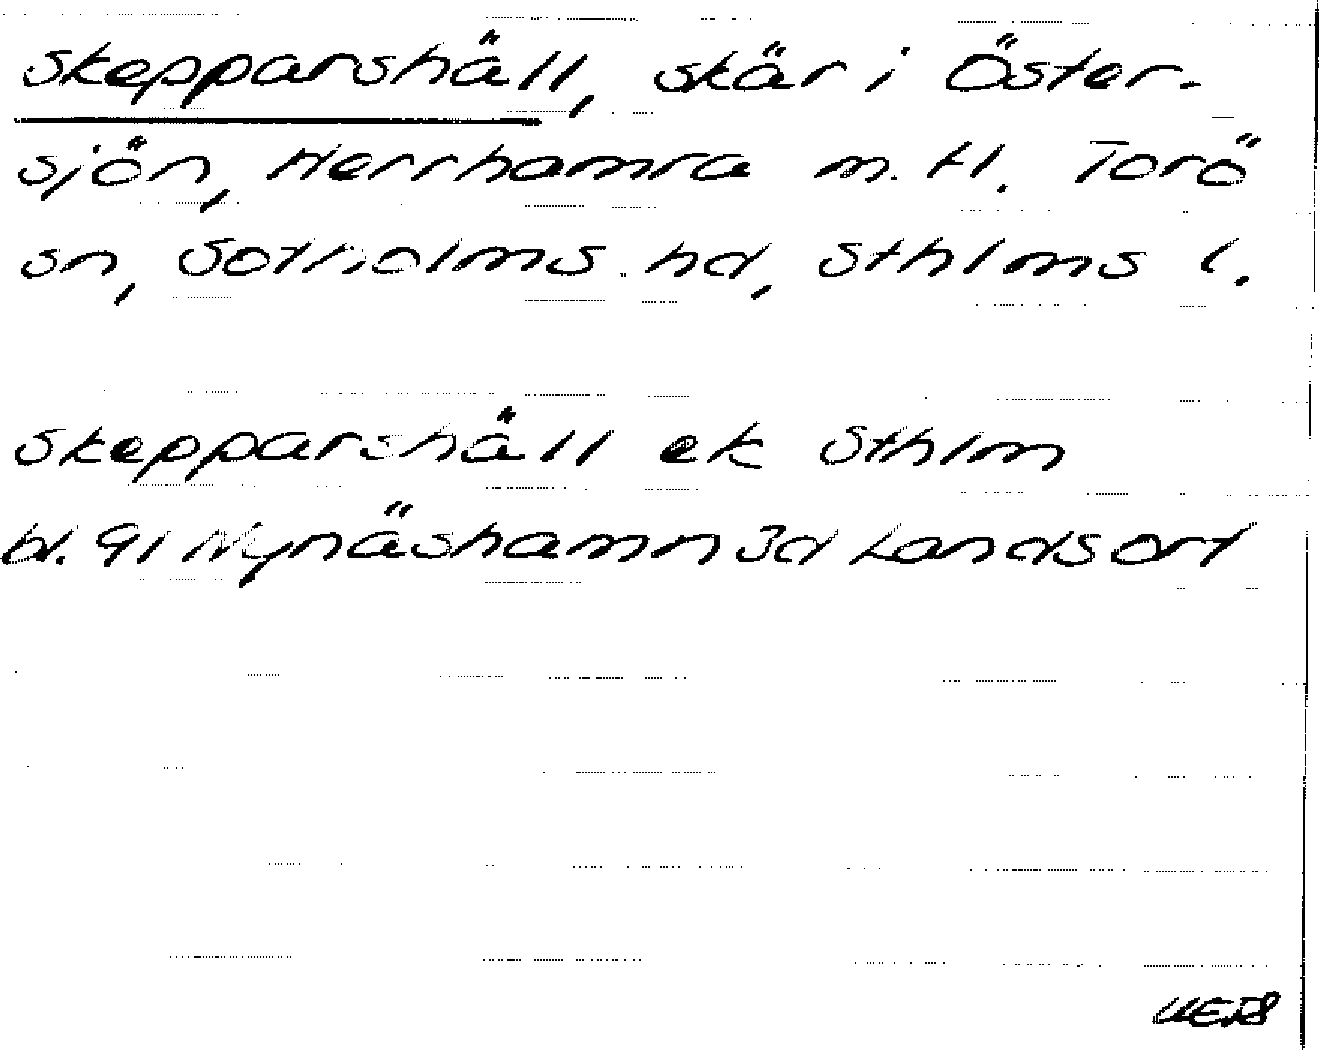 Skepparshäll, skär i Öster-
sjön, Herrhamra m. fl. Torö
sn, Sotholms hd, Sthlms l.
Skepparshäll ek Sthlm
bl. 91 Nynäshamn 3d Landsort